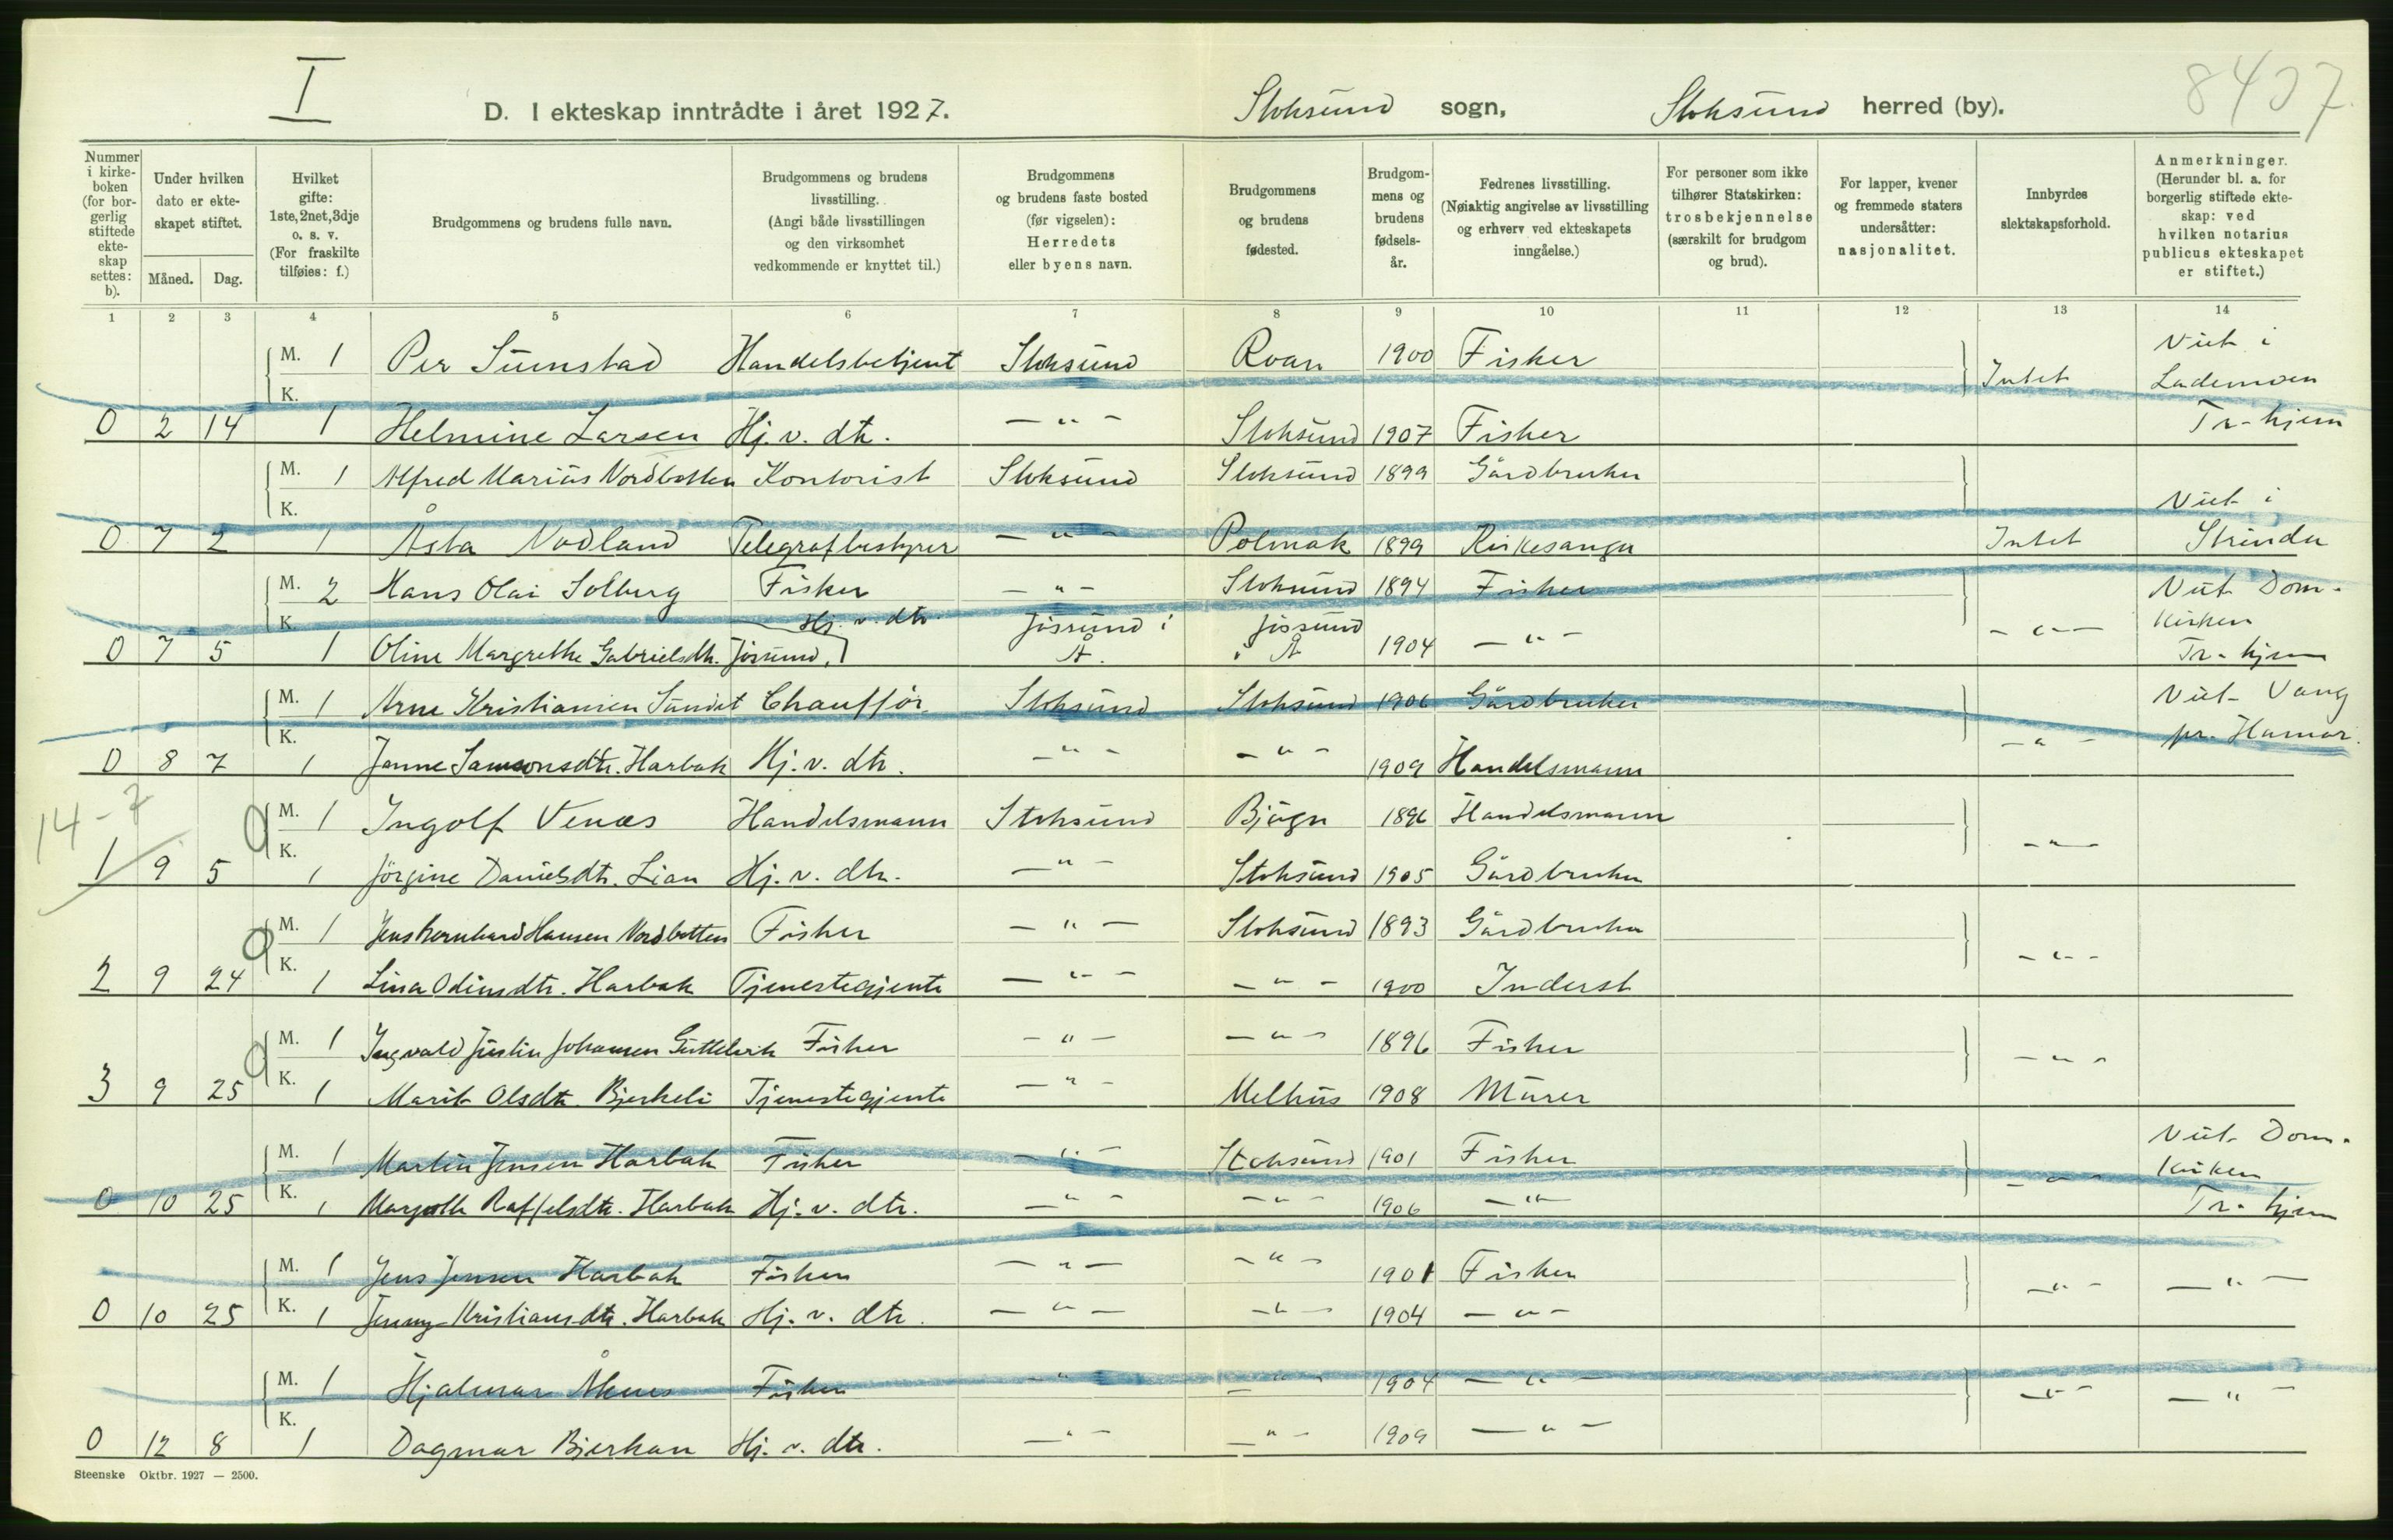 I
D. I ekteskap inntrådte i året 1927. Stoksund sogn, Stoksund herred (by). 8407
Nummer i kirkeboken (for borgerlig stiftede ekteskap settes: b).
Under hvilken dato er ekteskapet stiftet.
Måned. Dag.
Hvilket gifte: 1ste, 2net, 3dje o. s. v. (For fraskilte tilføies: f.)
Brudgommens og brudens fulle navn.
Brudgommens og brudens livsstilling. (Angi både livsstillingen og den virksomhet vedkommende er knyttet til.)
Brudgommens og brudens faste bosted (før vigselen): Herredets eller byens navn.
Brudgommens og brudens fødested.
Brudgommens og brudens fødselsår.
Fedrenes livsstilling. (Nøiaktig angivelse av livsstilling og erhverv ved ekteskapets inngåelse.)
For personer som ikke tilhører Statskirken: trosbekjennelse (særskilt for brudgom og brud).
For lapper, kvener og fremmede staters undersåtter: nasjonalitet.
Innbyrdes slektskapsforhold.
Anmerkninger. (Herunder bl. a. for borgerlig stiftede ekteskap: ved hvilken notarius publicus ekteskapet er stiftet.)
1 2 3 4 5 6 7 8 9 10 11 12 13 14
M. 1 Per Sumstad Handelsbetjent Stoksund Roan 1900 Fisker Intet Viet i Lademoen Tr-hjem
K.
0 2 14 1 Helmine Larsen Hj. v. dtr. — " — Stoksund 1907 Fisker
M. 1 Alfred Mariüs Nordbotten Kontorist Stoksund Stoksund 1899 Gårdbruker
K. Viet i
0 7 2 1 Åsta Nodland Telegrafbestyrer — " — Polmak 1899 Kirkesanger Intet Strinda
M. 2 Hans Olai Solberg Fisker — " — Stoksund 1894 Fisker Viet Dom-
K. Hj. v. dtr. Jøssund i Jøssund kirken
0 7 5 1 Oline Margrethe Gabrielsdtr. Jøssund. Å. i Å 1904 — " — — " — Tr-hjem
M. 1 Arne Kristiansen Sundet Chauffør Stoksund Stoksund 1906 Gårdbruker Viet Vang
K. — " — pr. Hamar.
0 8 7 1 Janne Samsonsdtr. Harbak Hj. v. dtr. — " — — " — 1909 Handelsmann
14-7
M. 1 Ingolf Venæs Handelsmann Stoksund Bjugn 1896 Handelsmann
K. — " —
1 9 5 1 Jörgine Danielsdtr. Lian Hj. v. dtr. — " — Stoksund 1905 Gårdbruker
M. 1 Jens Bernhard Hansen Nordbotten Fisker — " — Stoksund 1893 Gårdbruker
K. — " —
2 9 24 1 Lina Odinsdtr. Harbak Tjenestegjente — " — — " — 1900 Inderst
M. 1 Ingvald Justin Johansen Fisker — " — — " — 1896 Fisker
K. — " —
3 9 25 1 Marit Olsdtr. Bjerkeli Tjenestegjente — " — Melhus 1908 Murer
M. 1 Martin Jensen Harbak Fisker — " — Stoksund 1901 Fisker Viet Dom-
K. — " — kirken
0 10 25 1 Margrethe Raffelsdtr. Harbak Hj. v. dtr. — " — — " — 1906 — " — Tr-hjem
M. 1 Jens Jensen Harbak Fisker — " — — " — 1901 Fisker
K. — " — — " —
0 10 25 1 Jenny Kristiansdtr. Harbak Hj. v. dtr. — " — — " — 1904 — " —
M. 1 Hjalmar Åknes Fisker — " — — " — 1904 — " — — " — — " —
K.
0 12 8 1 Dagmar Bjerkan Hj. v. dtr. — " — — " — 1909 — " —
Steenske Oktbr. 1927 — 2500.